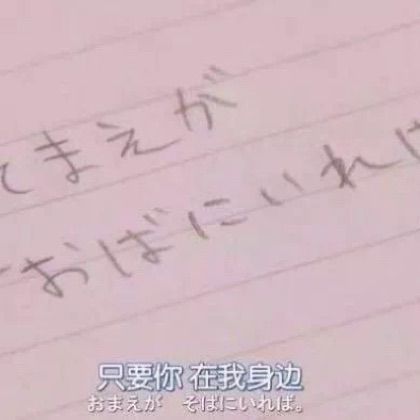 てまえが
おばにいれ
只要你 在我身边
おまえが　そばにいれば。